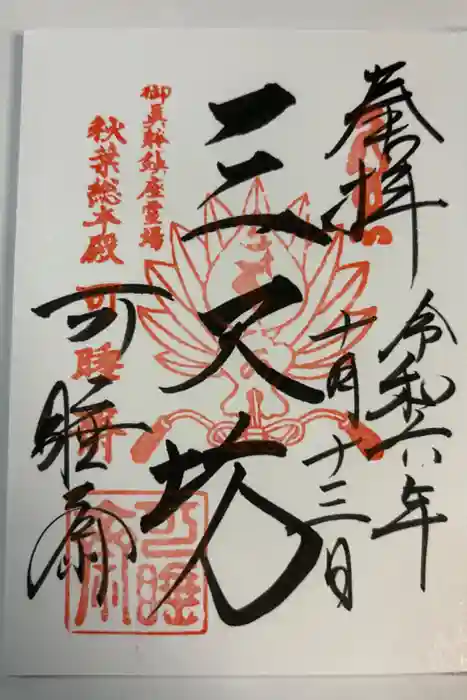 奉拝
令和六年
十月十三日
三尺坊
御真躰鎮座霊場
秋葉総本殿 可睡斎
可睡斎
可睡斎